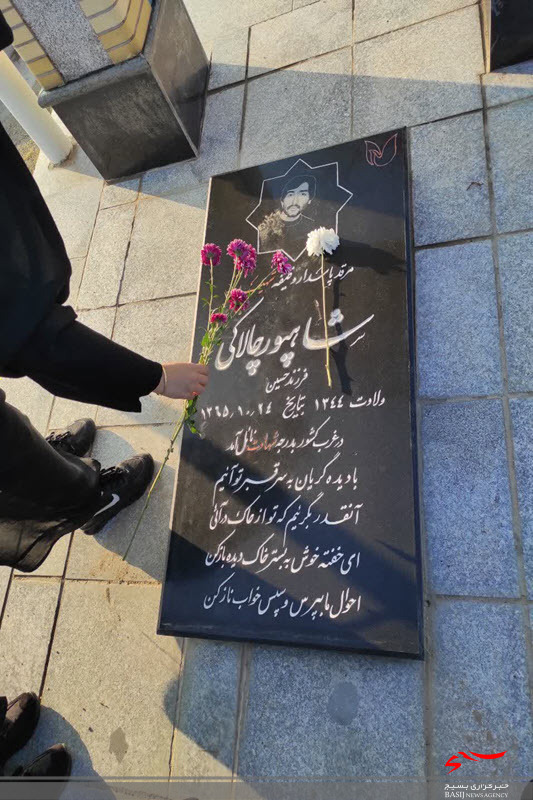 مرقد پاسدار وظیفه
شاهپور چالاکی
فرزند حسین
ولادت ۱۳۴۴ بتاریخ ۱۳۶۵٫۱۰٫۲۴
در غرب کشور بدرجه شهادت نائل آمد
با دیده گریان به سر قبر تو آئیم
آنقدر گرئیم که تو از خاک درآئی
ای خفته خوش به بستر خاک دیده باز کن
احوال ما بپرس و سپس خواب ناز کن
خبرگزاری بسیج
BASIJ NEWS AGENCY